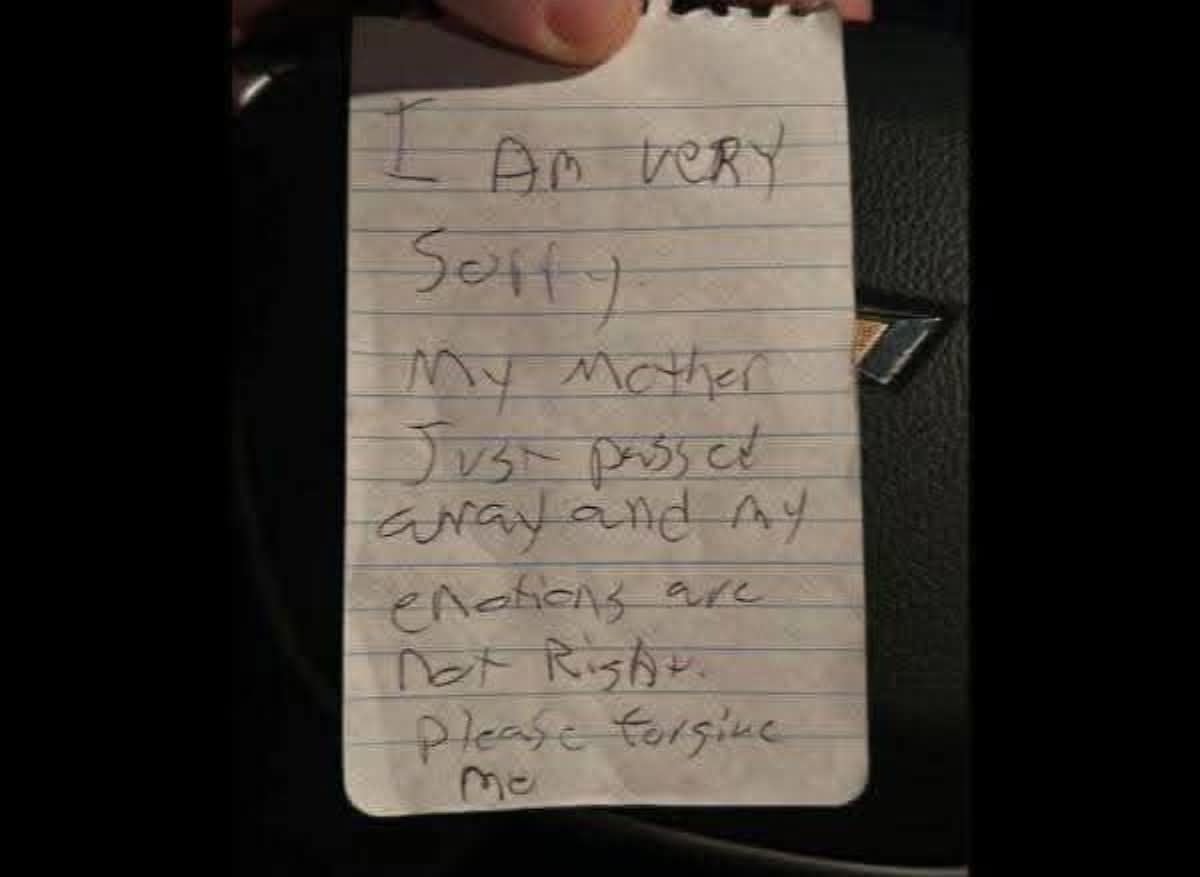 I Am veRY
Sorry.
My Mother
Just passed
away and my
emotions are
not Right.
please forgive
me